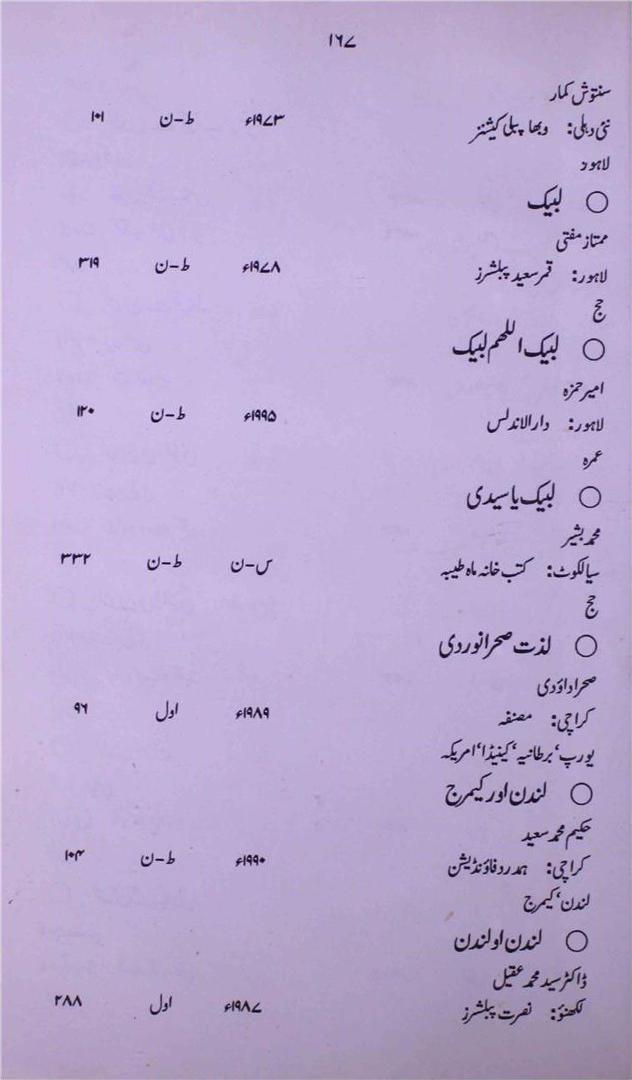 ۱۶۷
سنتوش کمار
نئی دہلی: وبھا پبلی کیشنز ۱۹۷۳ء ط-ن ۱۰۱
لاہور
○ لبیک
ممتاز مفتی
لاہور: قمر سعید پبلشرز ۱۹۷۸ء ط-ن ۳۱۹
حج
○ لبیک اللھم لبیک
امیر حمزہ
لاہور: دارالاندلس ۱۹۹۵ء ط-ن ۱۲۰
عمرہ
○ لبیک یا سیدی
محمد بشیر
سیالکوٹ: کتب خانہ ماہ طیبہ س-ن ط-ن ۳۳۲
حج
○ لذت صحرا نوردی
صحرا داؤدی
کراچی: مصنفہ ۱۹۸۹ء اول ۹۶
یورپ‘ برطانیہ‘ کینیڈا‘ امریکہ
○ لندن اور کیمرج
حکیم محمد سعید
کراچی: ہمدرد فاؤنڈیشن ۱۹۹۰ء ط-ن ۱۰۴
لندن‘ کیمرج
○ لندن او لندن
ڈاکٹر سید محمد عقیل
لکھنؤ: نصرت پبلشرز ۱۹۸۷ء اول ۲۸۸